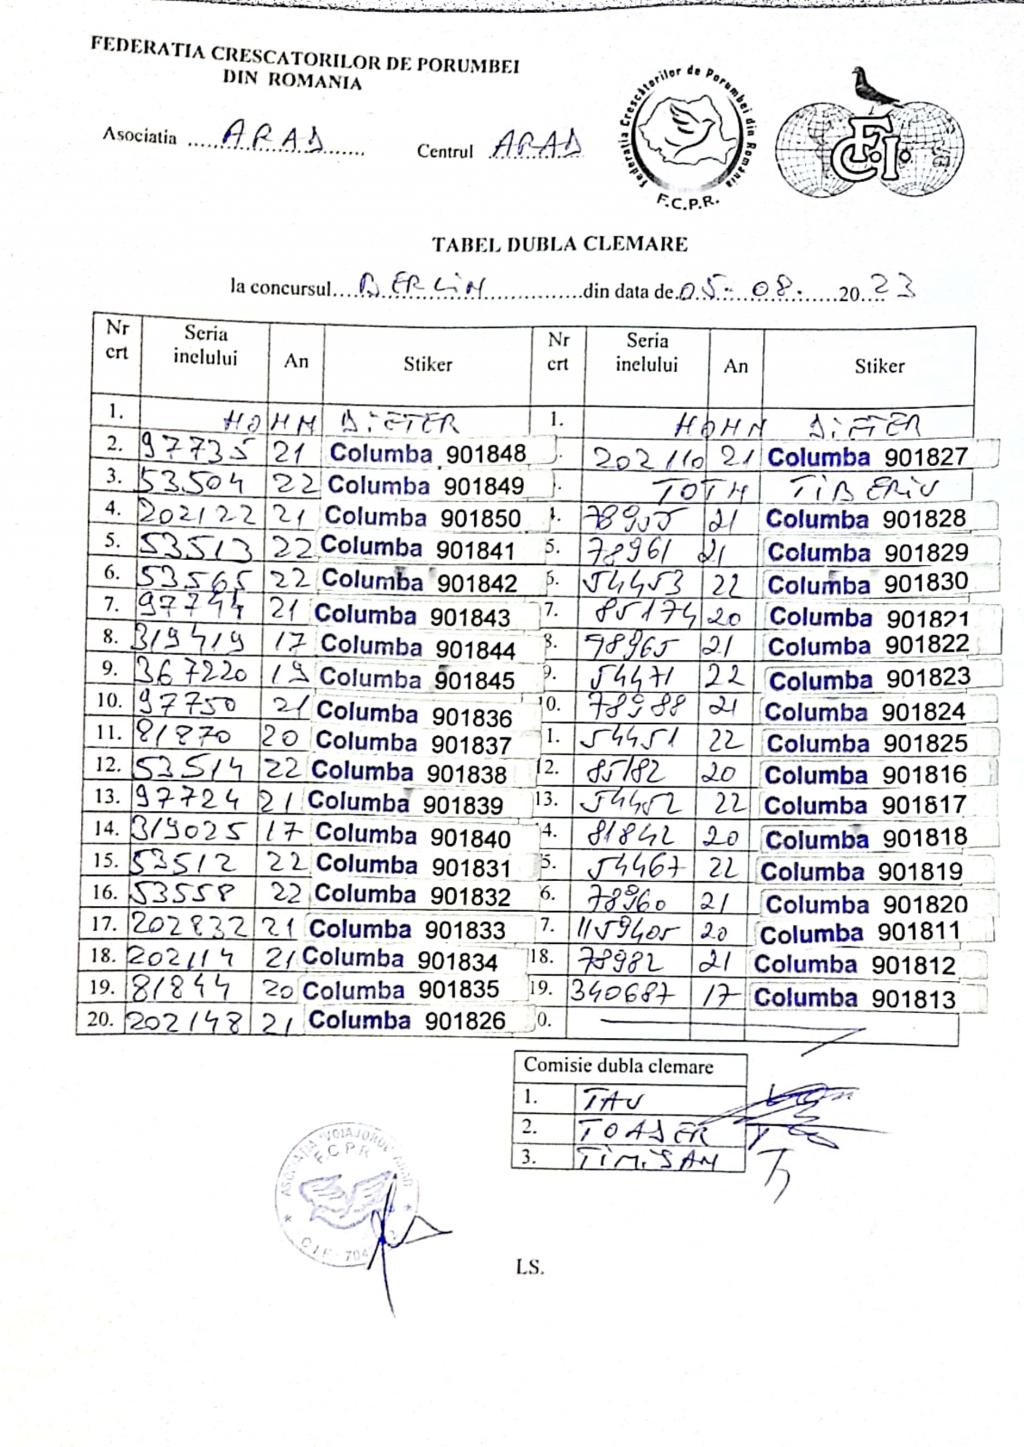 FEDERATIA CRESCATORILOR DE PORUMBEI
DIN ROMANIA
Asociatia ARAD Centrul ARAD
Federația Crescătorilor de Porumbei din România
F.C.P.R.
F.C.I.
TABEL DUBLA CLEMARE
la concursul BERLIN din data de 05-08- 2023
Nr crt Seria inelului An Stiker Nr crt Seria inelului An Stiker
1. HOHN DIETER 1. HOHN DIETER
2. 97735 21 Columba 901848 202110 21 Columba 901827
3. 53504 22 Columba 901849 TOTH TIBERIU
4. 202122 21 Columba 901850 4. 78955 21 Columba 901828
5. 53513 22 Columba 901841 5. 78961 21 Columba 901829
6. 53565 22 Columba 901842 6. 54453 22 Columba 901830
7. 97744 21 Columba 901843 7. 85174 20 Columba 901821
8. 319419 17 Columba 901844 8. 78965 21 Columba 901822
9. 367220 19 Columba 901845 9. 54471 22 Columba 901823
10. 97750 21 Columba 901836 0. 78988 21 Columba 901824
11. 81870 20 Columba 901837 1. 54451 22 Columba 901825
12. 53514 22 Columba 901838 12. 85182 20 Columba 901816
13. 97724 21 Columba 901839 13. 54452 22 Columba 901817
14. 319025 17 Columba 901840 4. 81842 20 Columba 901818
15. 53512 22 Columba 901831 5. 54467 22 Columba 901819
16. 53558 22 Columba 901832 6. 78960 21 Columba 901820
17. 202832 21 Columba 901833 7. 1159405 20 Columba 901811
18. 202114 21 Columba 901834 18. 78982 21 Columba 901812
19. 81844 20 Columba 901835 19. 340687 17 Columba 901813
20. 202148 21 Columba 901826 0.
Comisie dubla clemare
1. TAU
2. TOADER
3. TIMISAN
F C P R
LS.